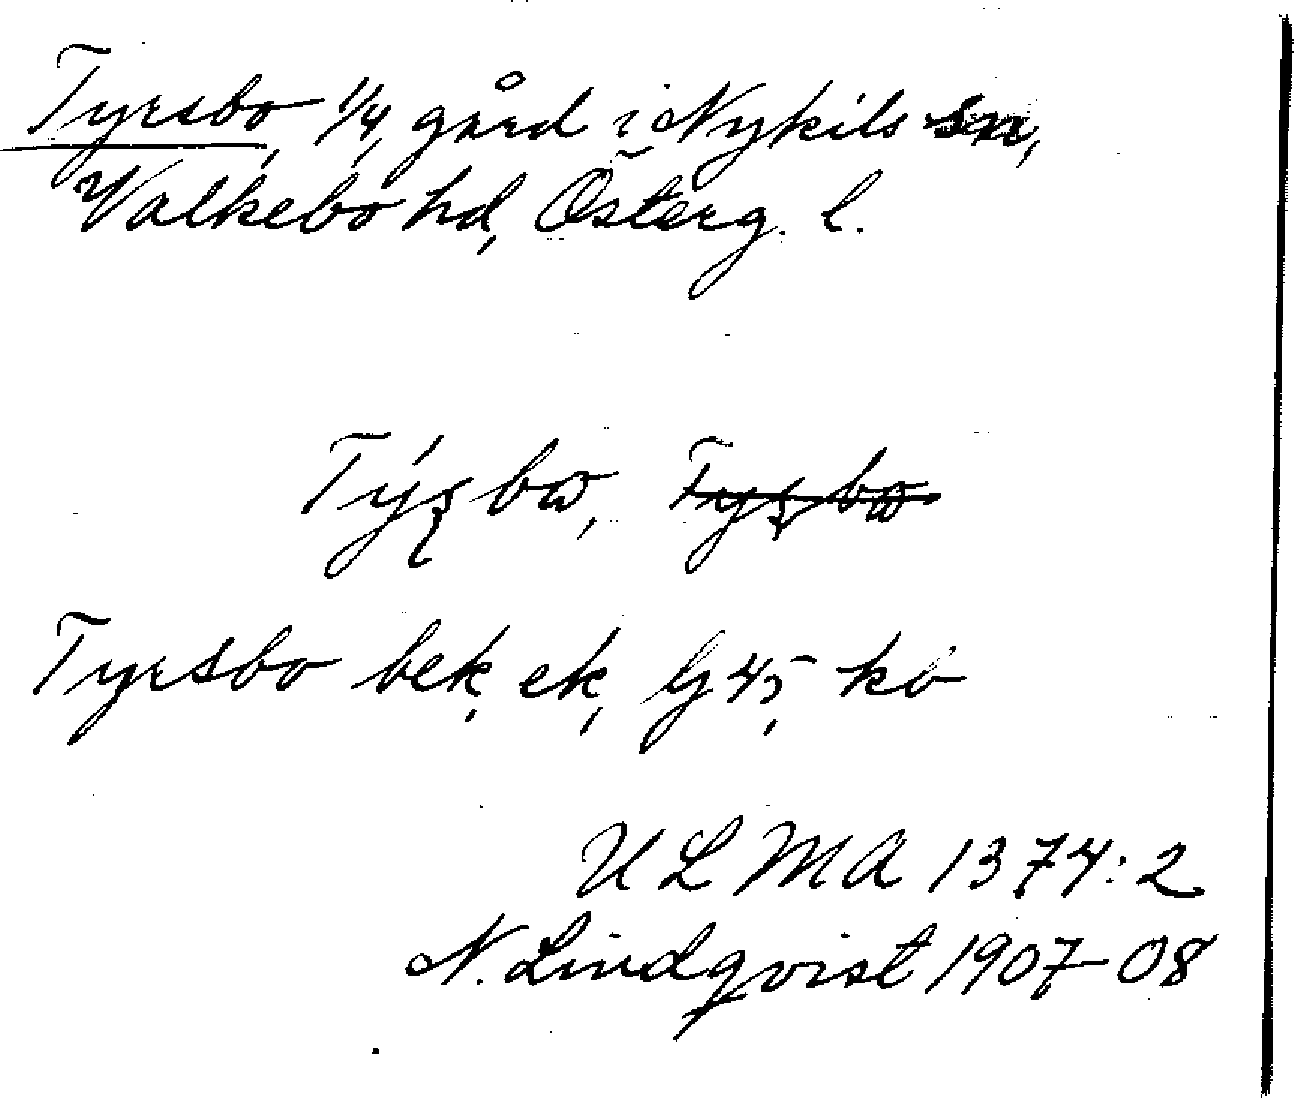 Tyrsbo, 1/4, gård i Nykils sn,
Valkebo hd, Österg. l.
Tyrsbo bek, ek, Gj 45, kö
ULMA 1374:2
N. Lindqvist 1907-08